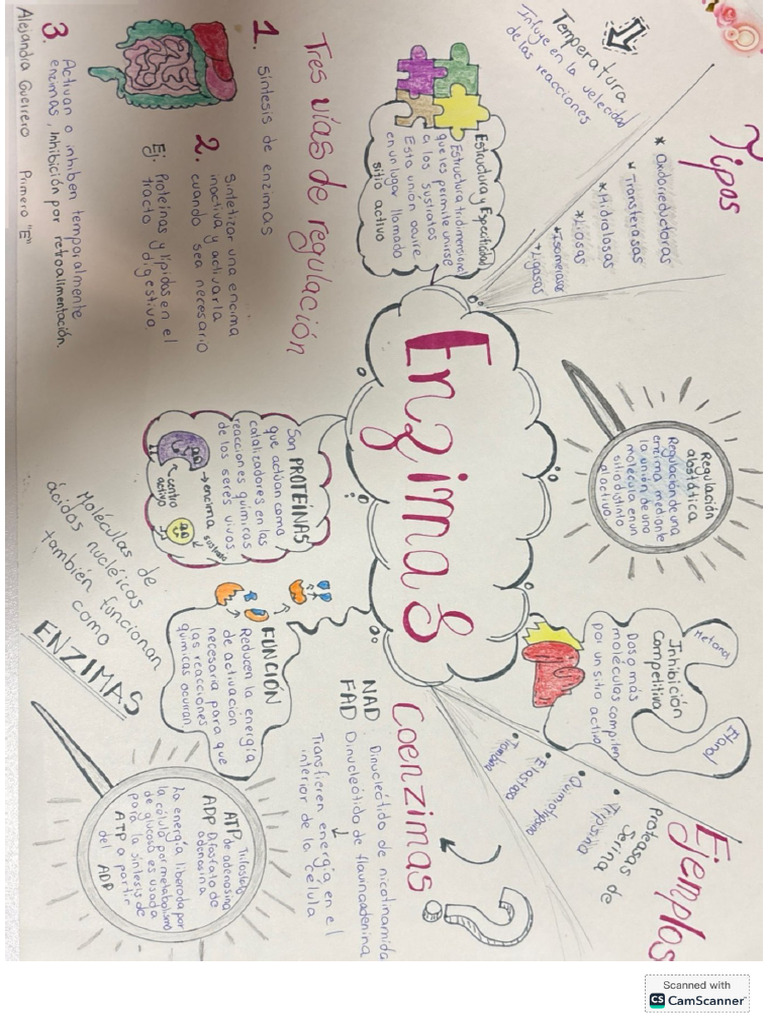 Enzimas
Tipos
* Oxidorreductoras
* Transferasas
* Hidralosas
* Liasas
* Isomerasas
* Ligasas
Temperatura
Influye en la velocidad
de las reacciones
Estructura y Especificidad
Estructura tridimensional
que les permite unirse
a los sustratos
Esta unión ocurre
en un lugar llamado
sitio activo
Tres vías de regulación
1. Síntesis de enzimas
2. Sintetizar una encima
inactiva y activarla
cuando sea necesario
Ej. Proteínas y lípidos en el
tracto digestivo.
3. Activan o inhiben temporalmente
enzimas, Inhibición por retroalimentación.
Alejandra Guerrero Primero "E"
Regulación
alostática
Regulación de una
enzima mediante
la unión de una
molécula en un
sitio distinto
al activo
Son PROTEÍNAS
que actúan como
catalizadores en las
reacciones químicas
de los seres vivos.
→ encima
sustrato
centro
activo
Moléculas de
ácidos nucléicos
también funcionan
como
ENZIMAS
FUNCIÓN
Reducen la energía
de activación
necesaria para que
las reacciones
químicas ocurran.
Metanol
Etanol
Inhibición
Competitiva
Dos o más
moléculas compiten
por un sitio activo
Ejemplos
Proteasas
Serina de
• tripsina
• Quimotripsina
• Elastasa
• Trombina
Coenzimas
NAD: Dinucleótido de nicotinamida
FAD: Dinucleótido de flavinaadenina
↓
Transfieren energía en el
interior de la célula
ATP Trifosfato
de adenosina
ADP Difosfato de
adenosina
La energía liberada por
la célula por metabolismo
de glucosa es usada
para la síntesis de
ATP a partir
del ADP
Scanned with
CS CamScanner